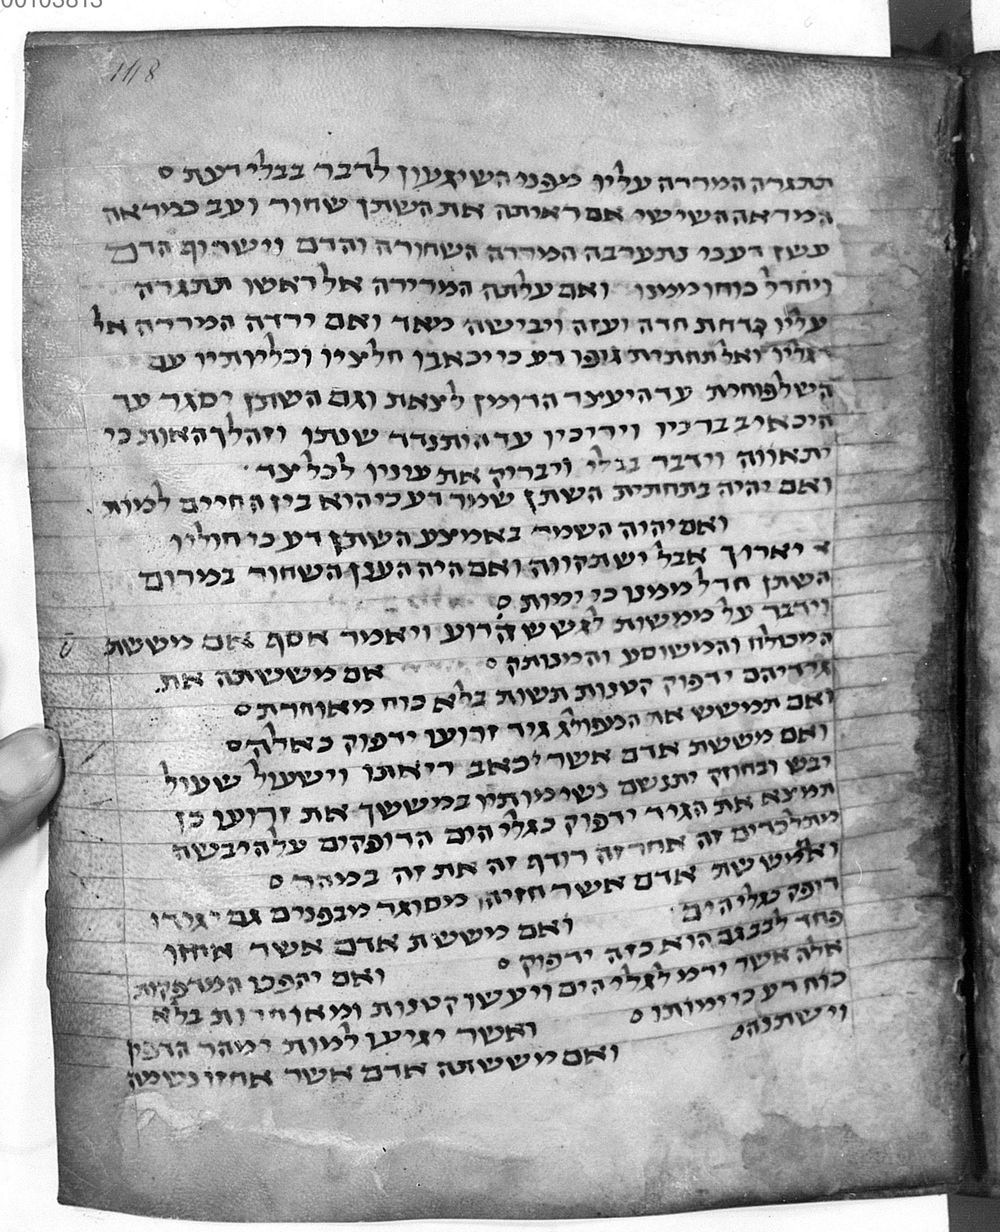 00103813
118
תתגרה המררה עליו מפני השיגעון לדבר בבלי דעת ס
המראה השישי אם ראיתה את השתן שחור ועב כמראה
עשן דע כי נתערבה המררה השחורה והדם וישרוף הדם
ויחדל כוחו ממנו ואם עלתה המרירה אל ראשו תתגרה
עליו קדחת חדה ועזה ויבישה מאד ואם ירדה המררה אל
רגליו ואל תחתית גופו דע כי יכאבו חלציו וכליותיו עם
השלפוחית עד היעצר הדומן לצאת וגם השתן יסגר עד
היכאיב ברכיו ויריכיו עד התנדד שנתו וזה לך האות כי
יתאווה וידבר בבלי ויבריק את עיניו לכל צד
ואם יהיה בתחתית השתן שמר דע כי הוא בין החיים למות
ואם יהיה השמר באמצע השתן דע כי חוליו
יארוך אבל יש תקווה ואם היה הענן השחור במרום
השתן חדל ממנו כי ימות ס
וידבר על ממשות לגשש הזרוע ויאמר אסף אם מששת
המטלח והמשוסע והמנותק ס אם מששתה את
גידיהם ידפוק קטנות תשות בלא כוח מאוחרת ס
ואם תמשש את המפולג גיד זרועו ידפוק כאלה ס
ואם מששת אדם אשר יכאב ריאתו וישעול שעול
יבש ובחוזק יתנשם נשימותיו במששך את זרועו כן
תמצא את הגיד ידפוק כגלי הים הדופקים על היבשה
מתלכדים זה אחר זה רודף זה את זה במהר ס
ואם מששת אדם אשר חזיהו מסוגר מבפנים גם יגידו
דופק כגלי הים ואם מששת אדם אשר אחזו
פחד לבבגם הוא כזה ידפוק ס ואם יהפכו המדפקות
אלה אשר ידמו לגלי הים ויעשו קטנות ומאוחרות בלא
כוח דע כי ימותו ס ואשר יגיעו למות ימהר הדפק
וישתנה ס ואם מששתה אדם אשר אחזו נשמה